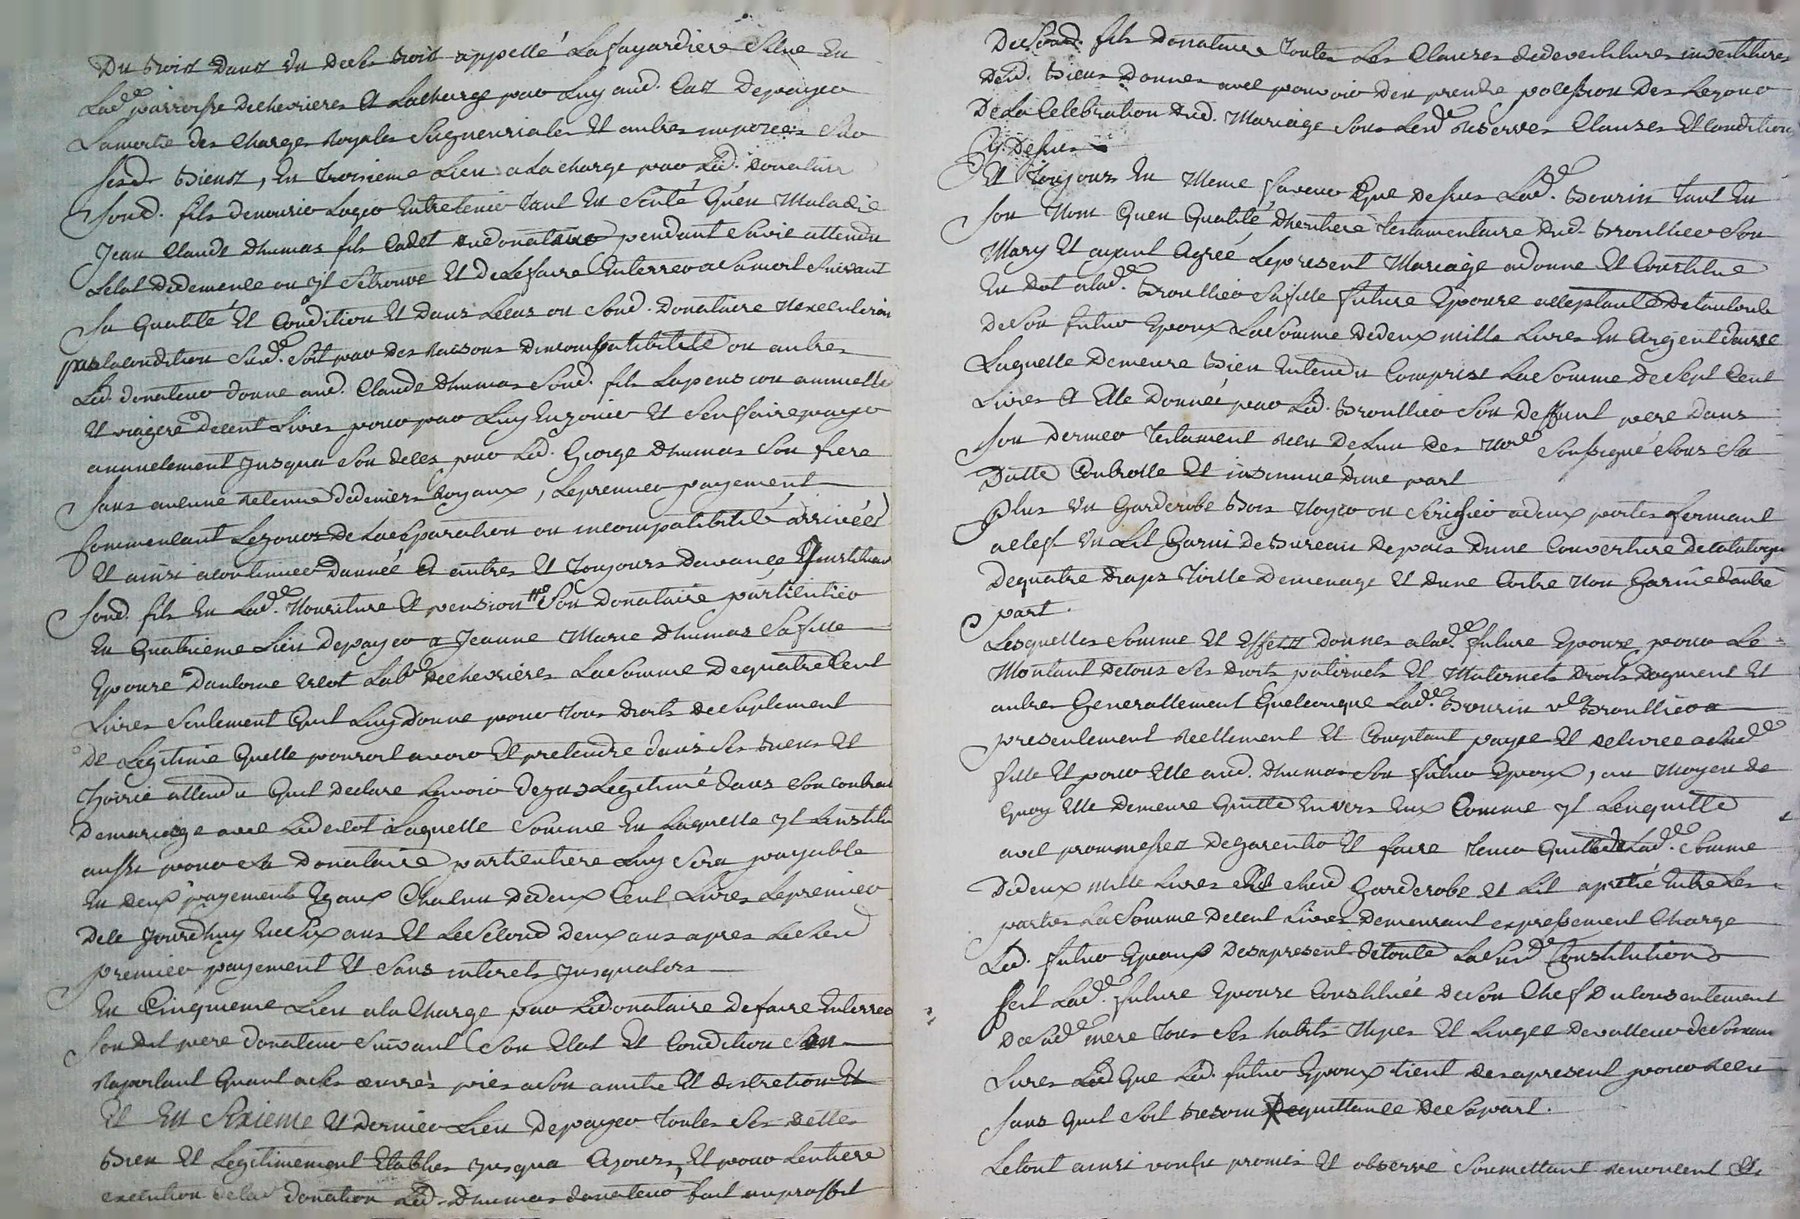 Du bois dans un de ses bois appellé La fayardiere situé en
Lad.e parroisse de chevrieres et a la charge par luy aud. cas de payer
La moitie des charges Royales Seigneuriales et autres imposees sur
sesd. biens, en troisieme Lieu a la charge par Led. donataire
Sond. fils de nourir Loger entretenir tant en senté qu'en Maladie
Jean Claude Dhumas fils Cadet du donateur pendant sa vie attendu
Letat de demence ou yl se trouve et de Le faire enterrer a sa mort suivant
Sa qualité et Condition et dans Le cas ou Sond. donataire n'executeroit
pas la condition susd.e soit par des raisons d'incompatibilité ou autres
Led. donateur donne aud. Claude Dhumas Sond. fils La pension annuelle
et viagere de cent Livres pour par Luy en jouir et s'en faire payer
annuelement jusqua son deces par Led. George Dhumas Son frere
Sans aucune retenue de deniers Royaux, Le premier payement
Commencant Le jour de La separation ou incompatibilité arrivée
et ainsi a continuer d'année en autres et toujours d'avance Instituant
Sond. fils en Lad.e nouriture et pension Son donataire particulier
en quatrieme Lieu de payer a Jeanne Marie Dhumas Sa fille
epouse d'antoine Lab.r de chevrieres La somme de quatre cent
Livres seulement quil Luy donne pour tous droits de suplement
de Legitime quelle pouroit avoir et pretendre dans ses biens et
hoirie attendu quil declare L'avoir deja Legitimé dans son contrat
de mariage avec Led. Laquelle somme en Laquelle yl L'institue
aussi pour sa donataire particuliere Luy sera payable
en deux payements egaux Chacun de deux Cent Livres Le premier
de ce jourdhuy en six ans et Le second deux ans apres Le susd.
premier payement et sans interets jusqualors
en Cinquieme Lieu a la charge par Led. donataire de faire enterrer
Son dit pere donateur suivant Son etat et Condition S'en
raportant quant a ses œuvres pies a son amitié et discretion et
et en Sixieme et dernier Lieu de payer toutes ses dettes
bien et Legitimement etablies jusqua ce jour, et pour L'entiere
execution de lad. donation Led. Dhumas donateur fait au proffit
De Sond. fils donataire toutes Les Clauses de devestitures investitures
Desd. biens donnes avec pouvoir d'en prendre possession Des Le jour
De La Celebration dud. Mariage Sous Lesd.es reserves Clauses et Conditions
Cy Dessus
Et toujours en Meme faveur que dessus Lad.e Bourin tant en
Son Nom quen qualité Dheritiere testamentaire dud. Broullier Son
Mary et ayant agréé Le present Mariage a donné et Constitué
En dot a lad.e Broullier Sa fille future epouse acceptant de L'autorite
de Son futur epoux La Somme de deux mille Livres en argent dans
Laquelle demeure bien entendu Comprise La Somme de Sept Cent
Livres a elle Donnée par Led. Broullier Son deffunt pere dans
Son dernier testament receu de L'un des No.res Soussigné sous Sa
Datte Controlle et insinué d'une part
Plus un Garderobe bois Noyer ou Cerisier a deux portes fermant
a clef un Lit Garni de bureau de pais d'une Couverture de catalogne
De quatre draps toille de menage et d'une Coitre Non Garnie d'autre
part.
Lesquelles Somme et effets donnes a lad.e future epouse pour Le
Montant de tous ses droits paternels et Maternels Droits d'augment et
autres Generallement quelconque Lad.e Bourin v.e Broullier a
presentement réellement et Comptant payée et delivrée a Lad.e
fille et pour elle aud. Dhumas Son futur epoux, au Moyen de
quoy elle demeure quitte envers eux Comme yl L'en quitte
avec prommesses de garentir et faire tenir quitte de Lad.e Somme
De deux mille Livres Garderobe et Lit aprétié entre Les
parties La somme de cent Livres demeurant expressement Chargé
Led. futur epoux des apresent de toute La susd.e Constitution
Seit Lad.e future epouse Constituée de Son Chef Du consentement
De Sad.e mere tous ses habits Nipes et Linges de valleur de Soixante
Livres que Led. futur epoux tient des apresent pour receu
Sans quil Soit besoin de quittance de Sa part.
Le tout ainsi voulu promis et observé Soumettant renoncent &c